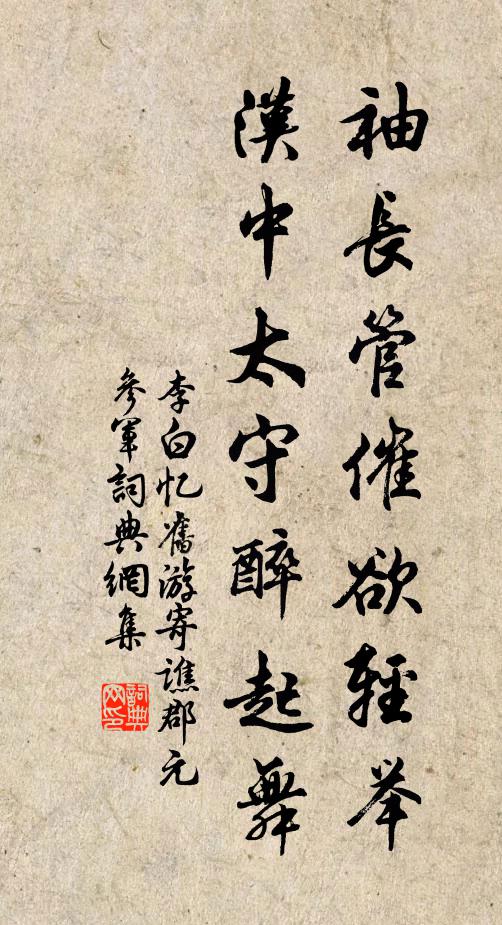 袖長管催欲輕举
漢中太守醉起舞
李白忆舊游寄譙郡元
參軍詞典網集
詞典网印